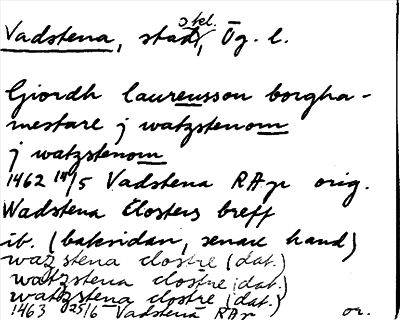 Vadstena, stad, skl. Ög. l.
Giordh laurensson borgha-
mestare j watzstenom
j watzstenom
1462 14/5 Vadstena RAp orig.
Wadstena Closters breff
ib. (baksidan, senare hand)
wazstena clostre (dat.)
watzstena clostre (dat.)
watzstena clostre (dat.)
1463 25/6 Vadstena RAp or.